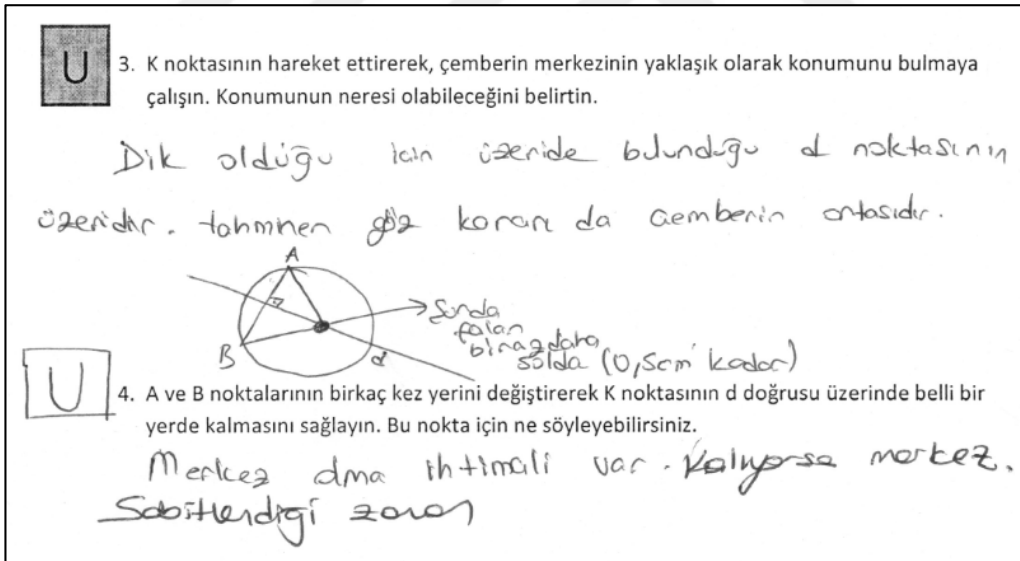 U
3. K noktasının hareket ettirerek, çemberin merkezinin yaklaşık olarak konumunu bulmaya
çalışın. Konumunun neresi olabileceğini belirtin.
Dik olduğu için üzeride bulunduğu d noktasının
üzeridir. tahminen göz kararı da çemberin ortasıdır.
A
B
d
Şunda
falan
biraz daha
solda (0,5cm kadar)
U
4. A ve B noktalarının birkaç kez yerini değiştirerek K noktasının d doğrusu üzerinde belli bir
yerde kalmasını sağlayın. Bu nokta için ne söyleyebilirsiniz.
Merkez olma ihtimali var. Kalıyorsa merkez.
Sabitlendiği zaman